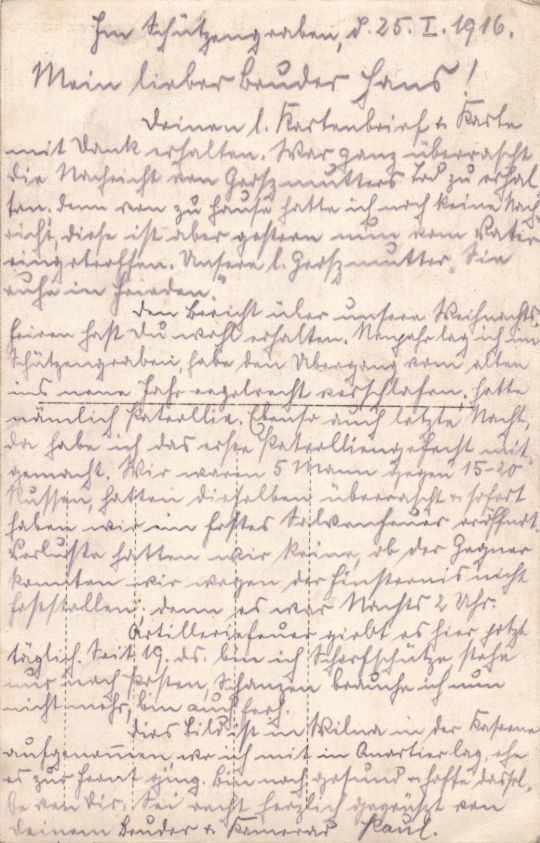 Im Schützengraben, d. 25. I. 1916.
Mein lieber Bruder Hans!
Deinen l. Kartenbrief & Karte
mit Dank erhalten. War ganz überrascht
die Nachricht von Grosz mutters Tod zu erhal-
ten, denn von zu Hause hatte ich noch keine Nach-
richt, diese ist aber gestern nun vom Vater
eingetroffen. Unsere l. Groszmutter „Sie
ruhe in Frieden."
Den Bericht über unsere Weihnachts-
feiern hast Du wohl erhalten. Neujahr lag ich im
Schützengraben, habe den Übergang vom alten
ins neue Jahr regelrecht verschlafen, hatte
nämlich Patrollie. Ebenso auch letzte Nacht,
da habe ich das erste Patrolliengefecht mit
gemacht. Wir waren 5 Mann gegen 15-20
Russen, hatten dieselben überrascht & sofort
haben wir ein festes Salvenfeuer eröffnet.
Verluste hatten wir keine, ob der Gegner
konnten wir wegen der Finsternis nicht
feststellen, denn es war Nachts 2 Uhr.
Artilleriefeuer giebt es hier jetzt
täglich. Seit 19. ds. bin ich Scharfschütze stehe
nur noch Posten, Schanzen brauche ich nun
nicht mehr, bin auch froh.
Dies Bild ist in Wilna in der Kaserne
aufgenommen wo ich mit in Quartier lag, ehe
es zur Front ging. Bin noch gesund & hoffe dassel-
be von Dir. Sei recht herzlich gegrüszt von
deinem Bruder & Kamerad Paul.